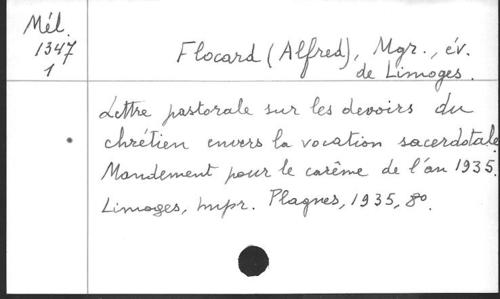 Mél.
1347
1
Flocard (Alfred), Mgr., év.
de Limoges.
Lettre pastorale sur les devoirs du
chrétien envers la vocation sacerdotale.
Mandement pour le carême de l'an 1935.
Limoges, Impr. Plagnes, 1935, 8o.